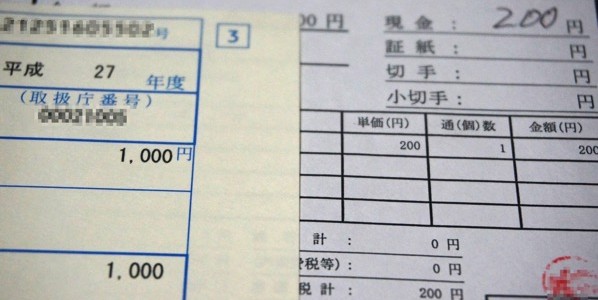 号
3
平成 27 年度
(取扱庁番号)
00021005
1,000円
1,000
00 円
現金: 200 円
証紙: 円
切手: 円
小切手: 円
単価(円) 通(個)数 金額(円)
200 1 200
計: 0 円
税等): 0 円
税計: 200 円